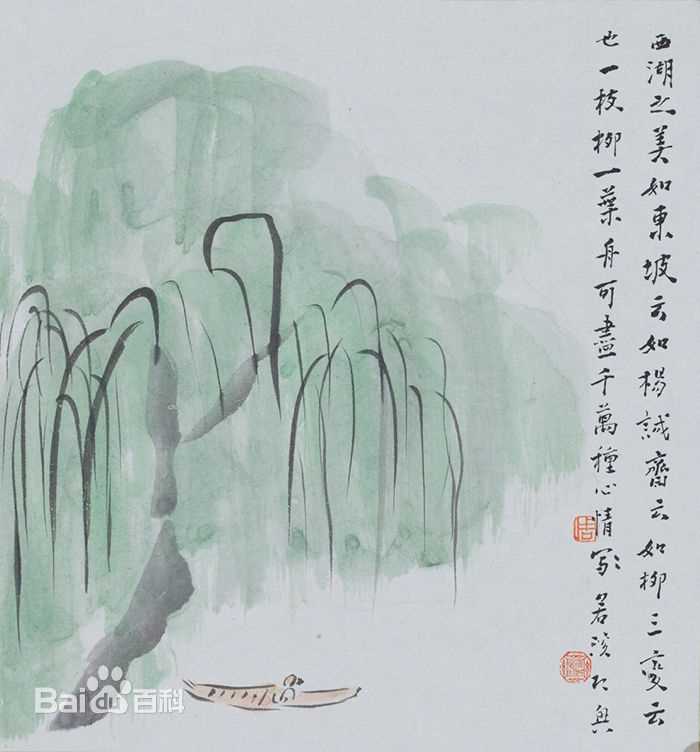 西湖之美如東坡云如楊誠齋云如柳三變云
也一枝柳一葉舟可盡千萬種心情寫
Bai百科